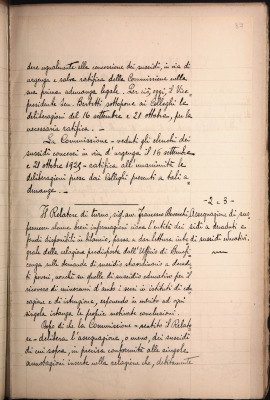 dere ugualmente alla concessione dei sussidi, in via di
urgenza e salva ratifica della Commissione nella
sua prima adunanza legale. Per ciò, oggi, il Vice
presidente Sen. Bertetti sottopone ai Colleghi la
deliberazioni del 16 settembre e 21 ottobre, per la
necessaria ratifica. -
La Commissione - veduti gli elenchi dei
sussidi concessi in via d'urgenza il 16 settembre
e 21 ottobre 1929 - ratifica all'unanimità le
deliberazioni prese dai Colleghi presenti a tali a-
dunanze. -
- 2 - 3 -
Il Relatore di turno, sig. avv. Francesco
Assegnazione di sus
premesse alcune brevi informazioni circa l'entità dei
fondi disponibili in bilancio, passa a dar lettura
sidi educativi.
grale della relazione predisposta dall'Ufficio di Benefi-
cenza sulle domande di sussidio elemosiniero a domicilio
di poveri, nonché su quelle di sussidio educativo per il
ricovero di minorenni d'ambo i sessi in istituti di edu
cazione e di istruzione, esponendo in merito ad ogni
singola istanza le proprie motivate conclusioni.
Dopo di che la Commissione - sentito il Relato
re - delibera l'assegnazione, o meno, dei sussidi
di cui sopra, in precisa conformità alle singole
annotazioni inserte nella relazione che, debitamente